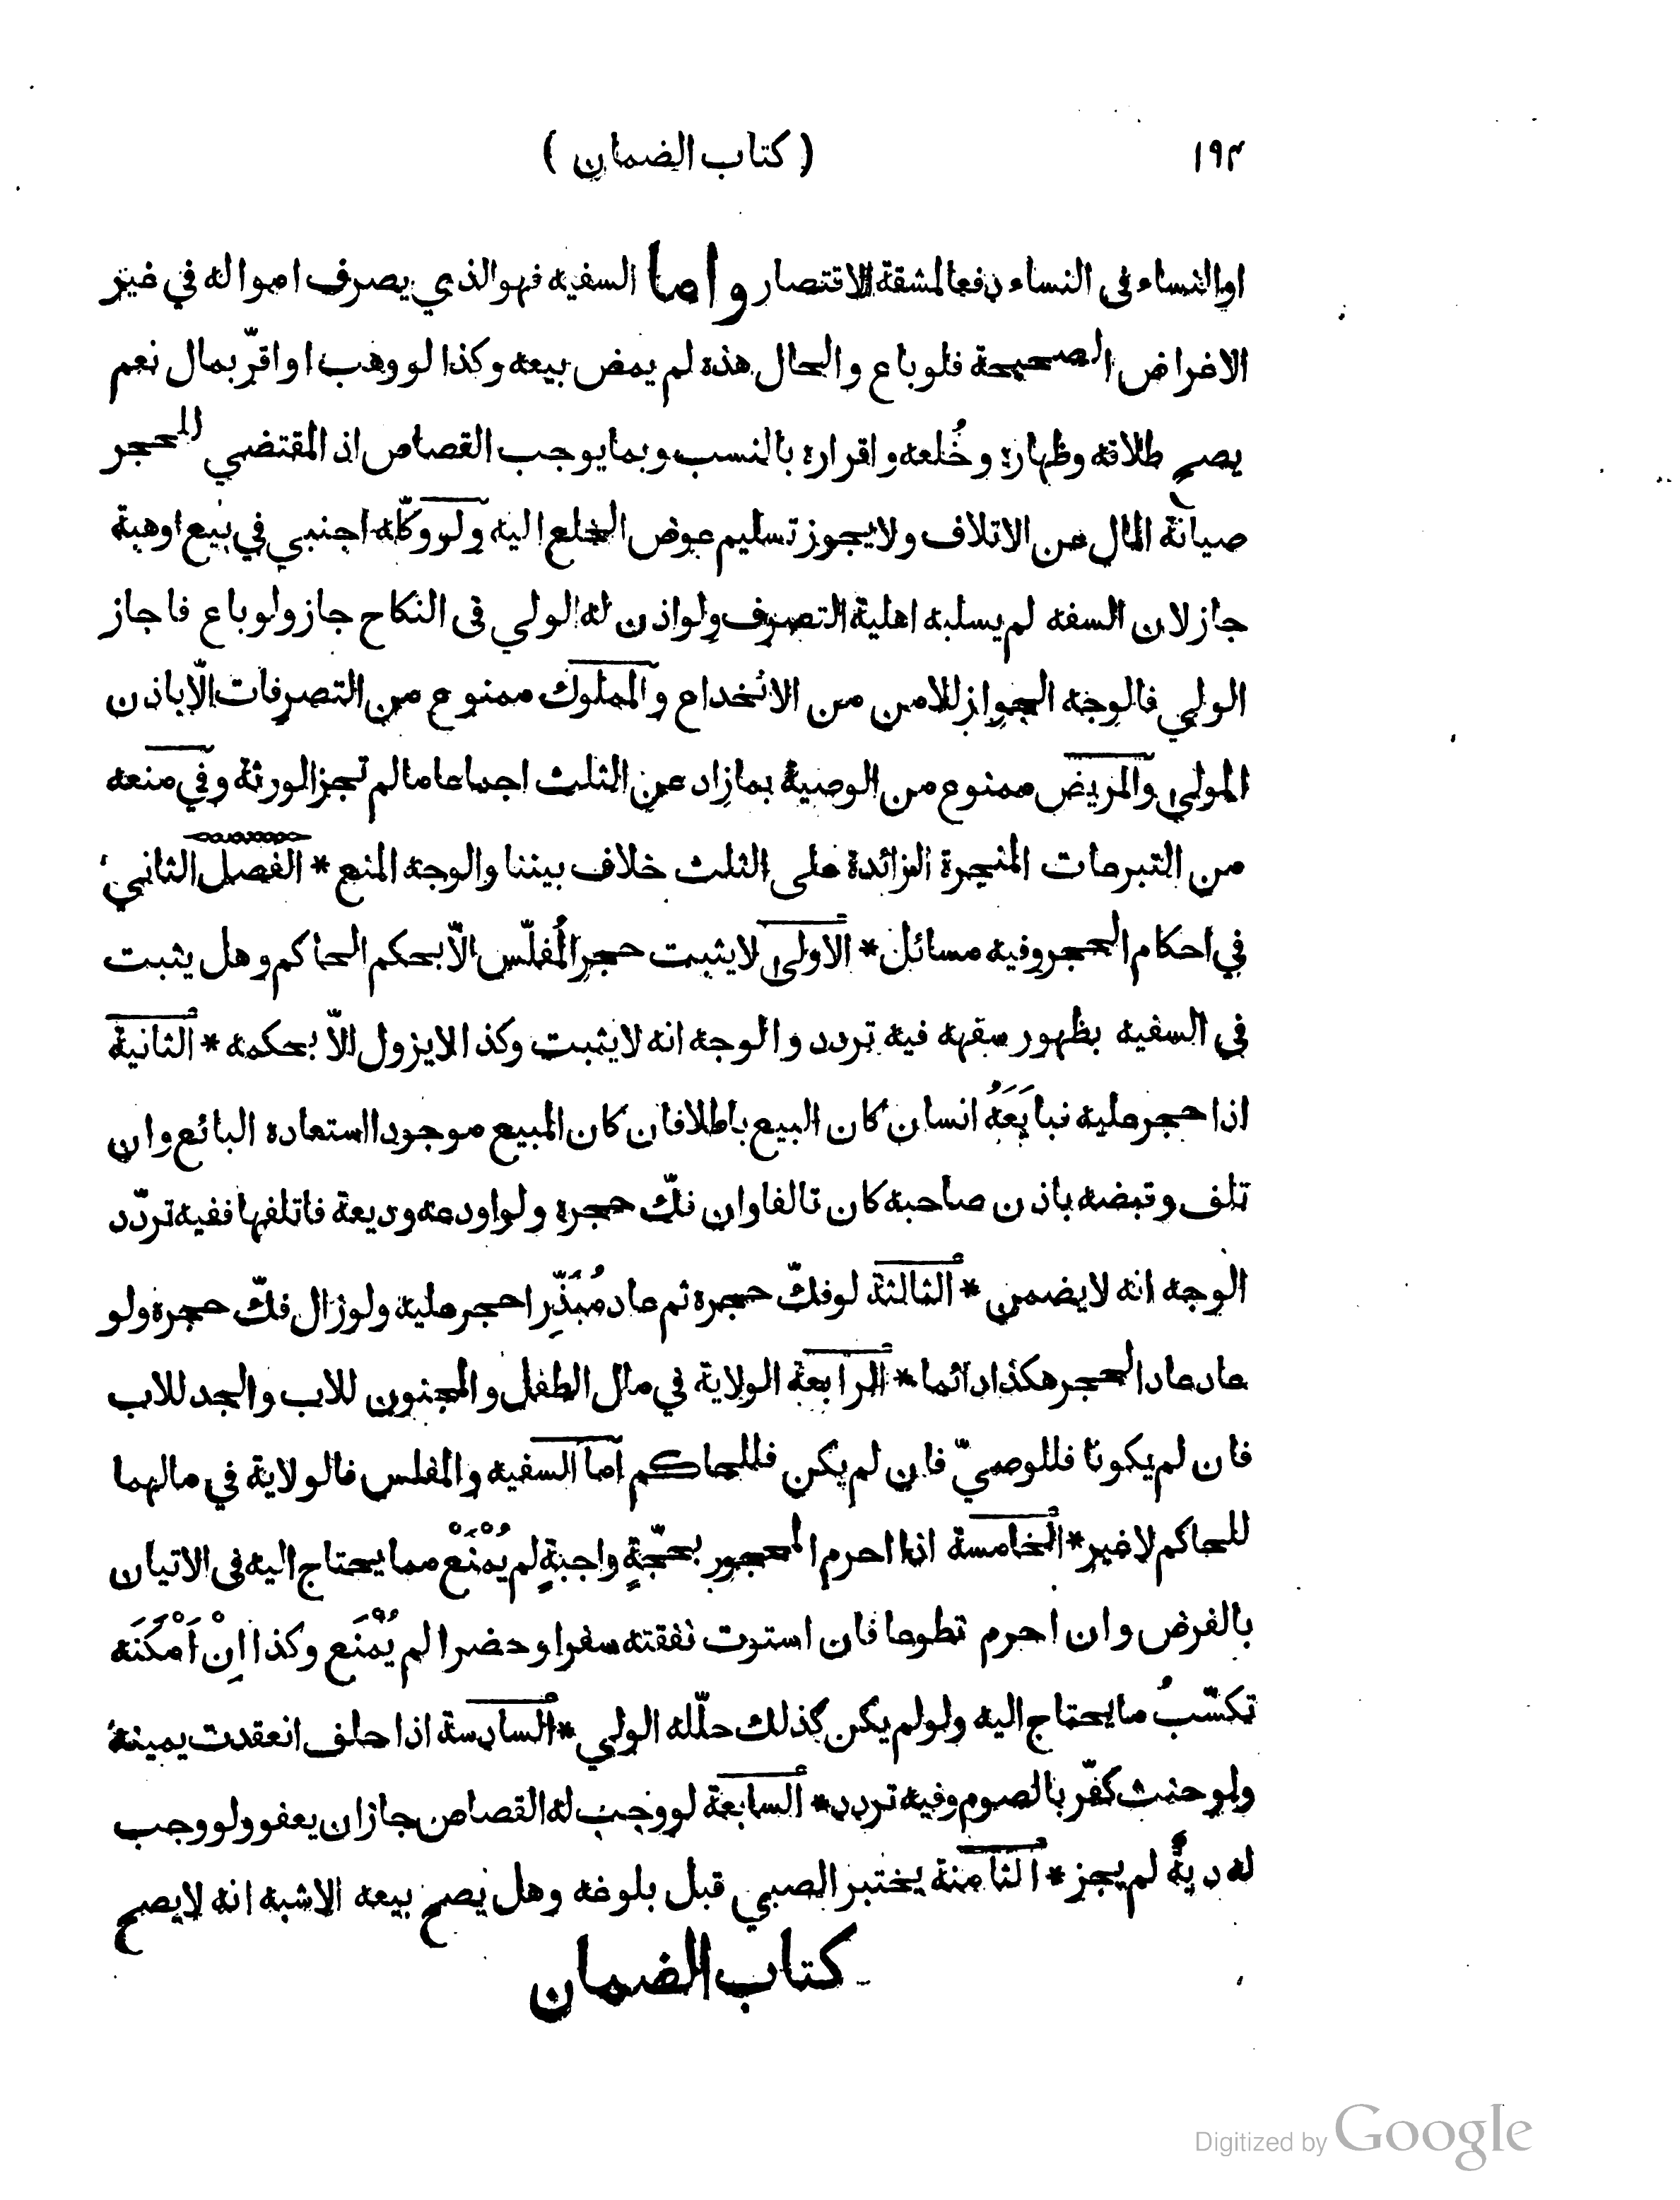 ١٩٤ ( كتاب الضمان )
او النساء فى النساء دفعا لمشقة الاقتصار واما السفيه فهو الذي يصرف امواله في غير
الاغراض الصحيحة فلو باع والحال هذه لم يمض بيعه وكذا لو وهب او اقرّ بمال نعم
يصح طلاقه وظهاره وخُلعه واقراره بالنسب وبما يوجب القصاص اذ المقتضي للحجر
صيانة المال عن الاتلاف ولا يجوز تسليم عوض الخلع اليه ولو وكّله اجنبي في بيع او هبة
جاز لان السفه لم يسلبه اهلية التصرف ولو اذن له الولي فى النكاح جاز ولو باع فاجاز
الولي فالوجه الجواز للامن من الانخداع والمملوك ممنوع من التصرفات الّا باذن
المولى والمريض ممنوع من الوصية بما زاد عن الثلث اجماعا ما لم تجز الورثة وفي منعه
من التبرعات المنجرة الزائدة على الثلث خلاف بيننا والوجه المنع * الفصل الثاني
في احكام الحجر وفيه مسائل * الاولى لا يثبت حجر المُفلّس الّا بحكم الحاكم وهل يثبت
في السفيه بظهور سفهه فيه تردد والوجه انه لا يثبت وكذا لا يزول الّا بحكمه * الثانية
اذا حجر عليه فبايَعَهُ انسان كان البيع باطلا فان كان المبيع موجودا استعاده البائع وان
تلف وقبضه باذن صاحبه كان تالفا وان فكّ حجره ولو اودعه وديعة فاتلفها ففيه تردّد
الوجه انه لا يضمن * الثالثة لو فكّ حجره ثم عاد مُبَذِّرا حجر عليه ولو زال فكّ حجره ولو
عاد عاد الحجر هكذا دائما * الرابعة الولاية في مال الطفل والمجنون للاب والجد للاب
فان لم يكونا فللوصيّ فان لم يكن فللحاكم اما السفيه والمفلس فالولاية في مالهما
للحاكم لا غير * الخامسة اذا احرم المحجور بحجّةٍ واجبةٍ لم يُمْنَعْ مما يحتاج اليه فى الاتيان
بالفرض وان احرم تطوعا فان استوت نفقته سفرا وحضرا لم يُمْنَع وكذا اِنْ اَمْكَنَه
تكسّبُ ما يحتاج اليه ولو لم يكن كذلك حلّله الولي * السادسة اذا حلف انعقدت يمينهُ
ولو حنث كفّر بالصوم وفيه تردد * السابعة لو وجب له القصاص جاز ان يعفو ولو وجب
له ديةٌ لم يجز * الثامنة يختبر الصبي قبل بلوغه وهل يصح بيعه الاشبه انه لا يصح
كتاب الضمان
Digitized by Google